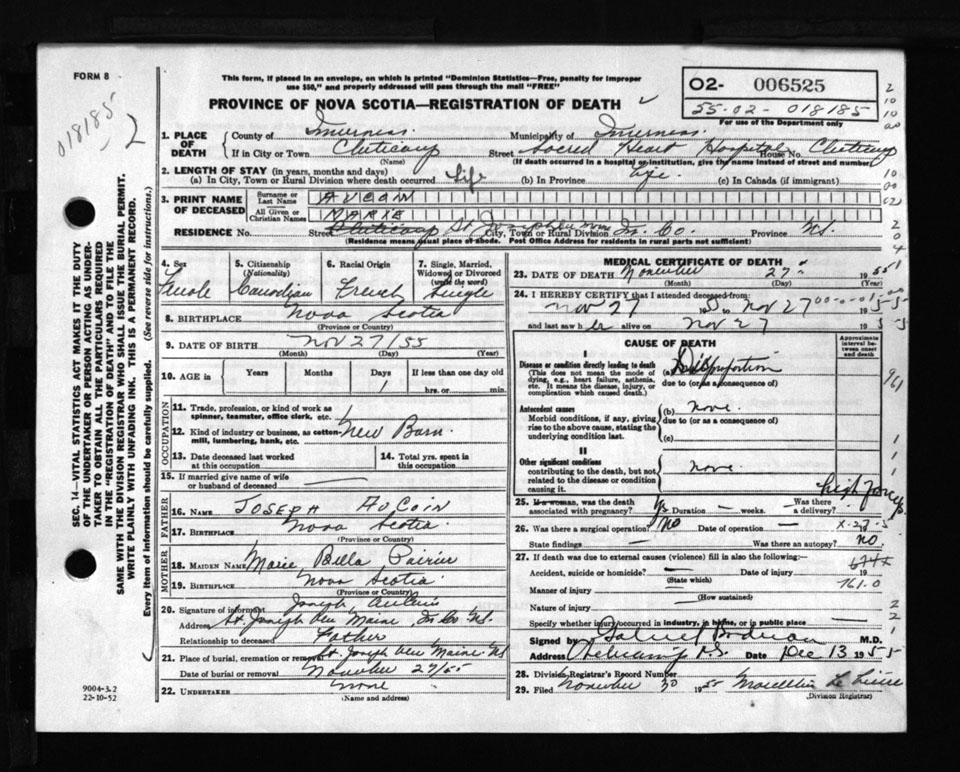 FORM 8
This form, if placed in an envelope, on which is printed "Dominion Statistics—Free, penalty for improper
use $50," and properly addressed will pass through the mail "FREE"
PROVINCE OF NOVA SCOTIA—REGISTRATION OF DEATH
O2- 006525
55-02-018185
For use of the Department only
018185
2
1. PLACE OF DEATH
County of Inverness Municipality of Inverness
If in City or Town Cheticamp Street Sacred Heart Hospital House No. Cheticamp
(Name) (If death occurred in a hospital or institution, give the name instead of street and number)
2. LENGTH OF STAY (in years, months and days)
(a) In City, Town or Rural Division where death occurred Life (b) In Province Life (c) In Canada (if immigrant)
3. PRINT NAME OF DECEASED
Surname or Last Name AUCOIN
All Given or Christian Names MARIE
RESIDENCE No. Street Cheticamp St Joseph du Moine City, Town or Rural Division In. Co. Province N.S.
(Residence means usual place of abode. Post Office Address for residents in rural parts not sufficient)
4. Sex
5. Citizenship (Nationality) Canadian
6. Racial Origin French
7. Single, Married, Widowed or Divorced (write the word) Single
8. BIRTHPLACE Nova Scotia
(Province or Country)
9. DATE OF BIRTH Nov 27/55
(Month) (Day) (Year)
10. AGE in Years Months Days If less than one day old
1 hrs. or min.
OCCUPATION
11. Trade, profession, or kind of work as spinner, teamster, office clerk, etc.
12. Kind of industry or business, as cotton-mill, lumbering, bank, etc. New Born
13. Date deceased last worked at this occupation
14. Total yrs. spent in this occupation
15. If married give name of wife or husband of deceased —
FATHER
16. Name JOSEPH AUCOIN
17. Birthplace Nova Scotia
(Province or Country)
MOTHER
18. MAIDEN NAME Marie Bella
19. BIRTHPLACE Nova Scotia
(Province or Country)
20. Signature of informant Joseph Aucoin
Address St. Joseph du Moine In Co N.S.
Relationship to deceased Father
21. Place of burial, cremation or removal St. Joseph du Moine N.S.
Date of burial or removal November 27/55
22. UNDERTAKER None
(Name and address)
MEDICAL CERTIFICATE OF DEATH
23. DATE OF DEATH November 27 1955
(Month) (Day)
24. I HEREBY CERTIFY that I attended deceased from:
Nov 27 55 to Nov 27 1955
and last saw her alive on Nov 27 1955
CAUSE OF DEATH
Approximate interval between onset and death
I
Disease or condition directly leading to death
(This does not mean the mode of dying, e.g., heart failure, asthenia, etc. It means the disease, injury, or complication which caused death.)
(a) Disproportion
due to (or as a consequence of)
Antecedent causes
Morbid conditions, if any, giving rise to the above cause, stating the underlying condition last.
(b) none.
due to (or as a consequence of)
(c)
II
Other significant conditions
contributing to the death, but not related to the disease or condition causing it.
none.
high forceps
25. If a woman, was the death associated with pregnancy? Yes Duration — weeks. Was there a delivery?
26. Was there a surgical operation? No Date of operation — 19
State findings — Was there an autopsy? no.
27. If death was due to external causes (violence) fill in also the following:—
Accident, suicide or homicide? — Date of injury 19
(State which)
Manner of injury 761.0
(How sustained)
Nature of injury —
Specify whether injury occurred in industry, in home, or in public place
Signed by M.D.
Address Cheticamp N.S. Date Dec 13 1955
28. Division Registrar's Record Number
29. Filed November 30 1955
(Division Registrar)
SEC. 14—VITAL STATISTICS ACT MAKES IT THE DUTY
OF THE UNDERTAKER OR PERSON ACTING AS UNDER-
TAKER TO OBTAIN ALL THE PARTICULARS REQUIRED
IN THE "REGISTRATION OF DEATH" AND TO FILE THE
SAME WITH THE DIVISION REGISTRAR WHO SHALL ISSUE THE BURIAL PERMIT.
WRITE PLAINLY WITH UNFADING INK. THIS IS A PERMANENT RECORD.
Every item of information should be carefully supplied. (See reverse side for instructions.)
9004-3.2
22-10-52